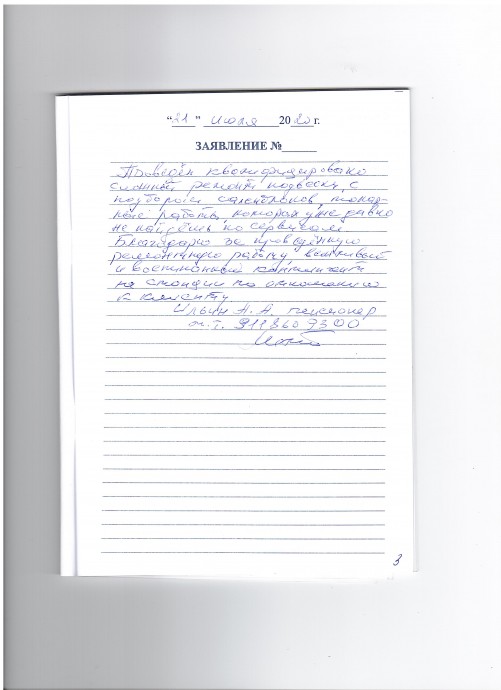 "21" июля 2020 г.
ЗАЯВЛЕНИЕ №
Проведён квалифицировано
сложный ремонт подвески, с
подбором саленблоков, токар-
ные работы, которая уже давно
не найдёшь по сервисам
Благодарю за проведённую
ремонтную работу, вежливый
и воспитанный
на станции по отношению
к клиенту
Ильин А. А. пенсионер
м.т. 911 860 7300
3